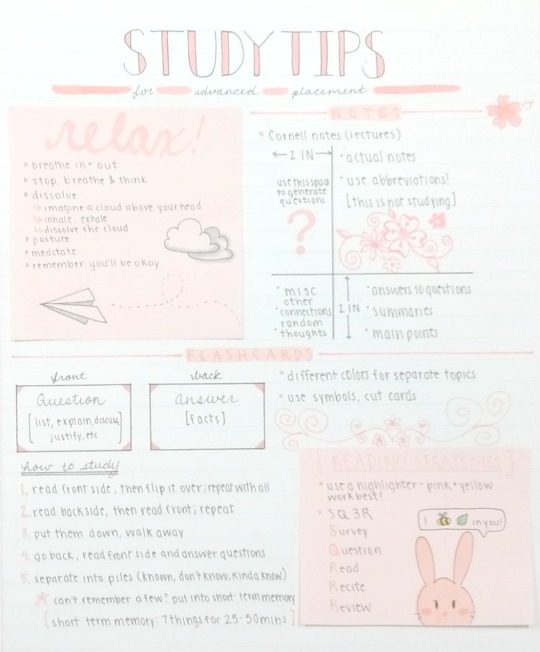 STUDY TIPS
for advanced placement
relax!
breathe in + out
stop, breathe & think
dissolve
imagine a cloud above your head
inhale, exhale
dissolve the cloud
posture
meditate
remember: you'll be okay
NOTES
Cornell notes (lectures)
← 2 IN →
use this space
to generate
questions
?
actual notes
use abbreviations!
[this is not studying]
misc
other
connections
random
thoughts
2 IN
answers to questions
summaries
main points
FLASHCARDS
front
Question
[list, explain, discuss,
justify, etc]
back
answer
[facts]
different colors for separate topics
use symbols, cut cards
how to study
1. read front side, then flip it over; repeat with all
2. read back side, then read front; repeat
3. put them down, walk away
4. go back, read front side and answer questions
5. separate into piles (known, don't know, kinda know)
can't remember a few? put into short term memory
[short term memory: 7 things for 25-50 mins]
[READING STRATEGIES]
use a highlighter - pink + yellow
work best!
SQ3R
Survey
Question
Read
Recite
Review
I in you!